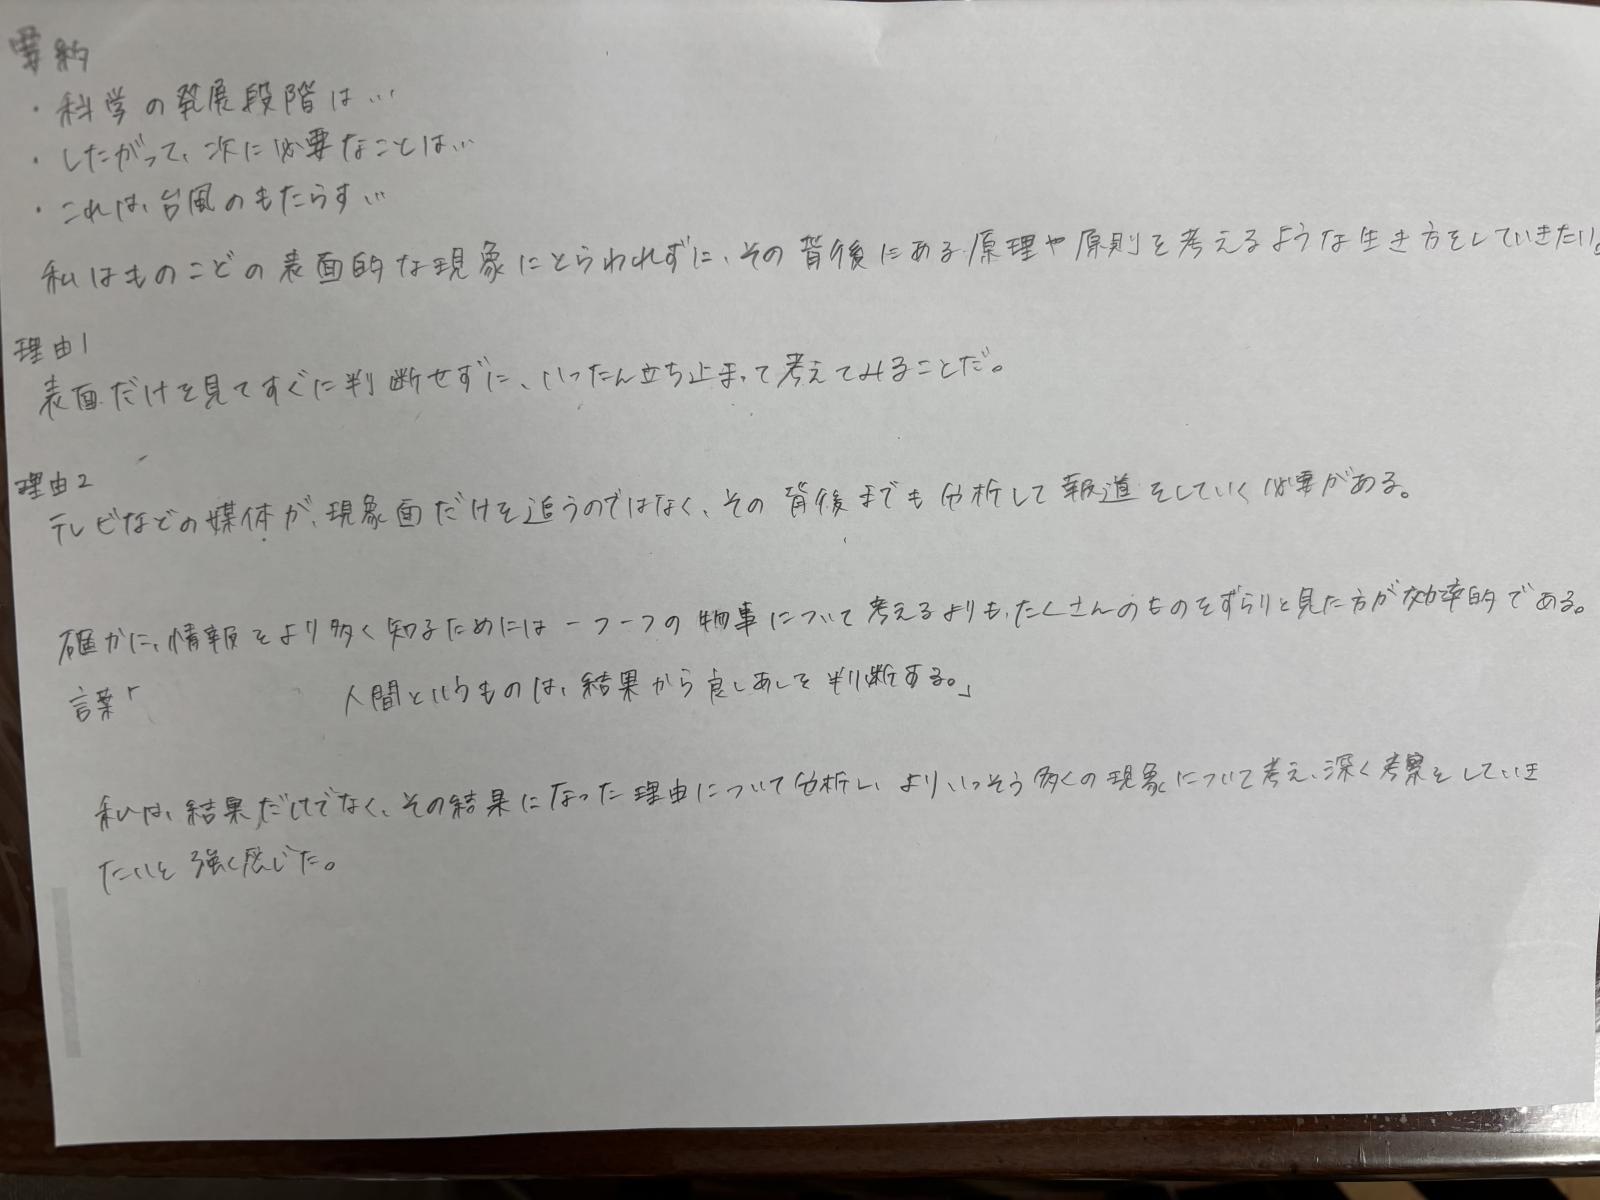 要約
・科学の発展段階は…
・したがって、次に必要なことは…
・これは、台風のもたらす…
私はものごとの表面的な現象にとらわれずに、その背後にある原理や原則を考えるような生き方をしていきたい。
理由1
表面だけを見てすぐに判断せずに、いったん立ち止まって考えてみることだ。
理由2
テレビなどの媒体が、現象面だけを追うのではなく、その背後までも分析して報道をしていく必要がある。
確かに、情報をより多く知るためには一つ一つの物事について考えるよりも、たくさんのものをずらりと見た方が効率的である。
言葉「 人間というものは、結果から良しあしを判断する。」
私は、結果だけでなく、その結果になった理由について分析し、よりいっそう多くの現象について考え、深く考察をしていき
たいと強く感じた。